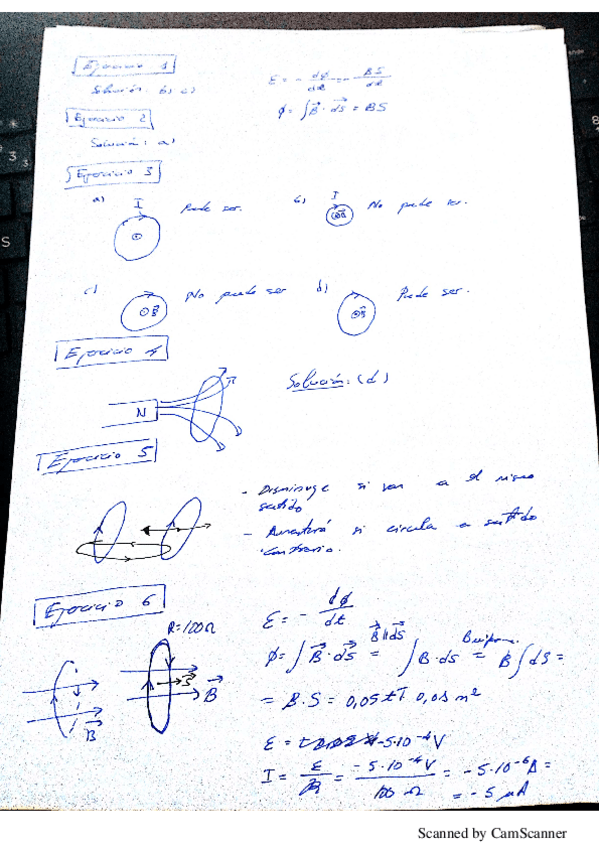 Ejercicio 1
Solución: b) c)
ε = - dφ/dt = - BS/dt
φ = ∫B⃗ · ds⃗ = BS
Ejercicio 2
Solución: a)
Ejercicio 3
a) I Puede ser.
b) I B⃗ No puede ser.
c) B⃗ No puede ser
d) B⃗ Puede ser.
Ejercicio 4
N B⃗
Solución: (d)
Ejercicio 5
- Disminuye si van a el mismo
sentido
- Aumentará si circula a sentido
contrario.
Ejercicio 6
R=100Ω
B⃗
S⃗ B⃗
ε = - dφ/dt
B⃗||ds⃗
φ = ∫B⃗ · ds⃗ = ∫B · ds = B∫dS =
= B·S = 0,05 t T 0,01 m²
ε = -5·10⁻⁴ V
I = ε/R = -5·10⁻⁴ V/100 Ω = -5·10⁻⁶ A =
= -5 μA
Scanned by CamScanner